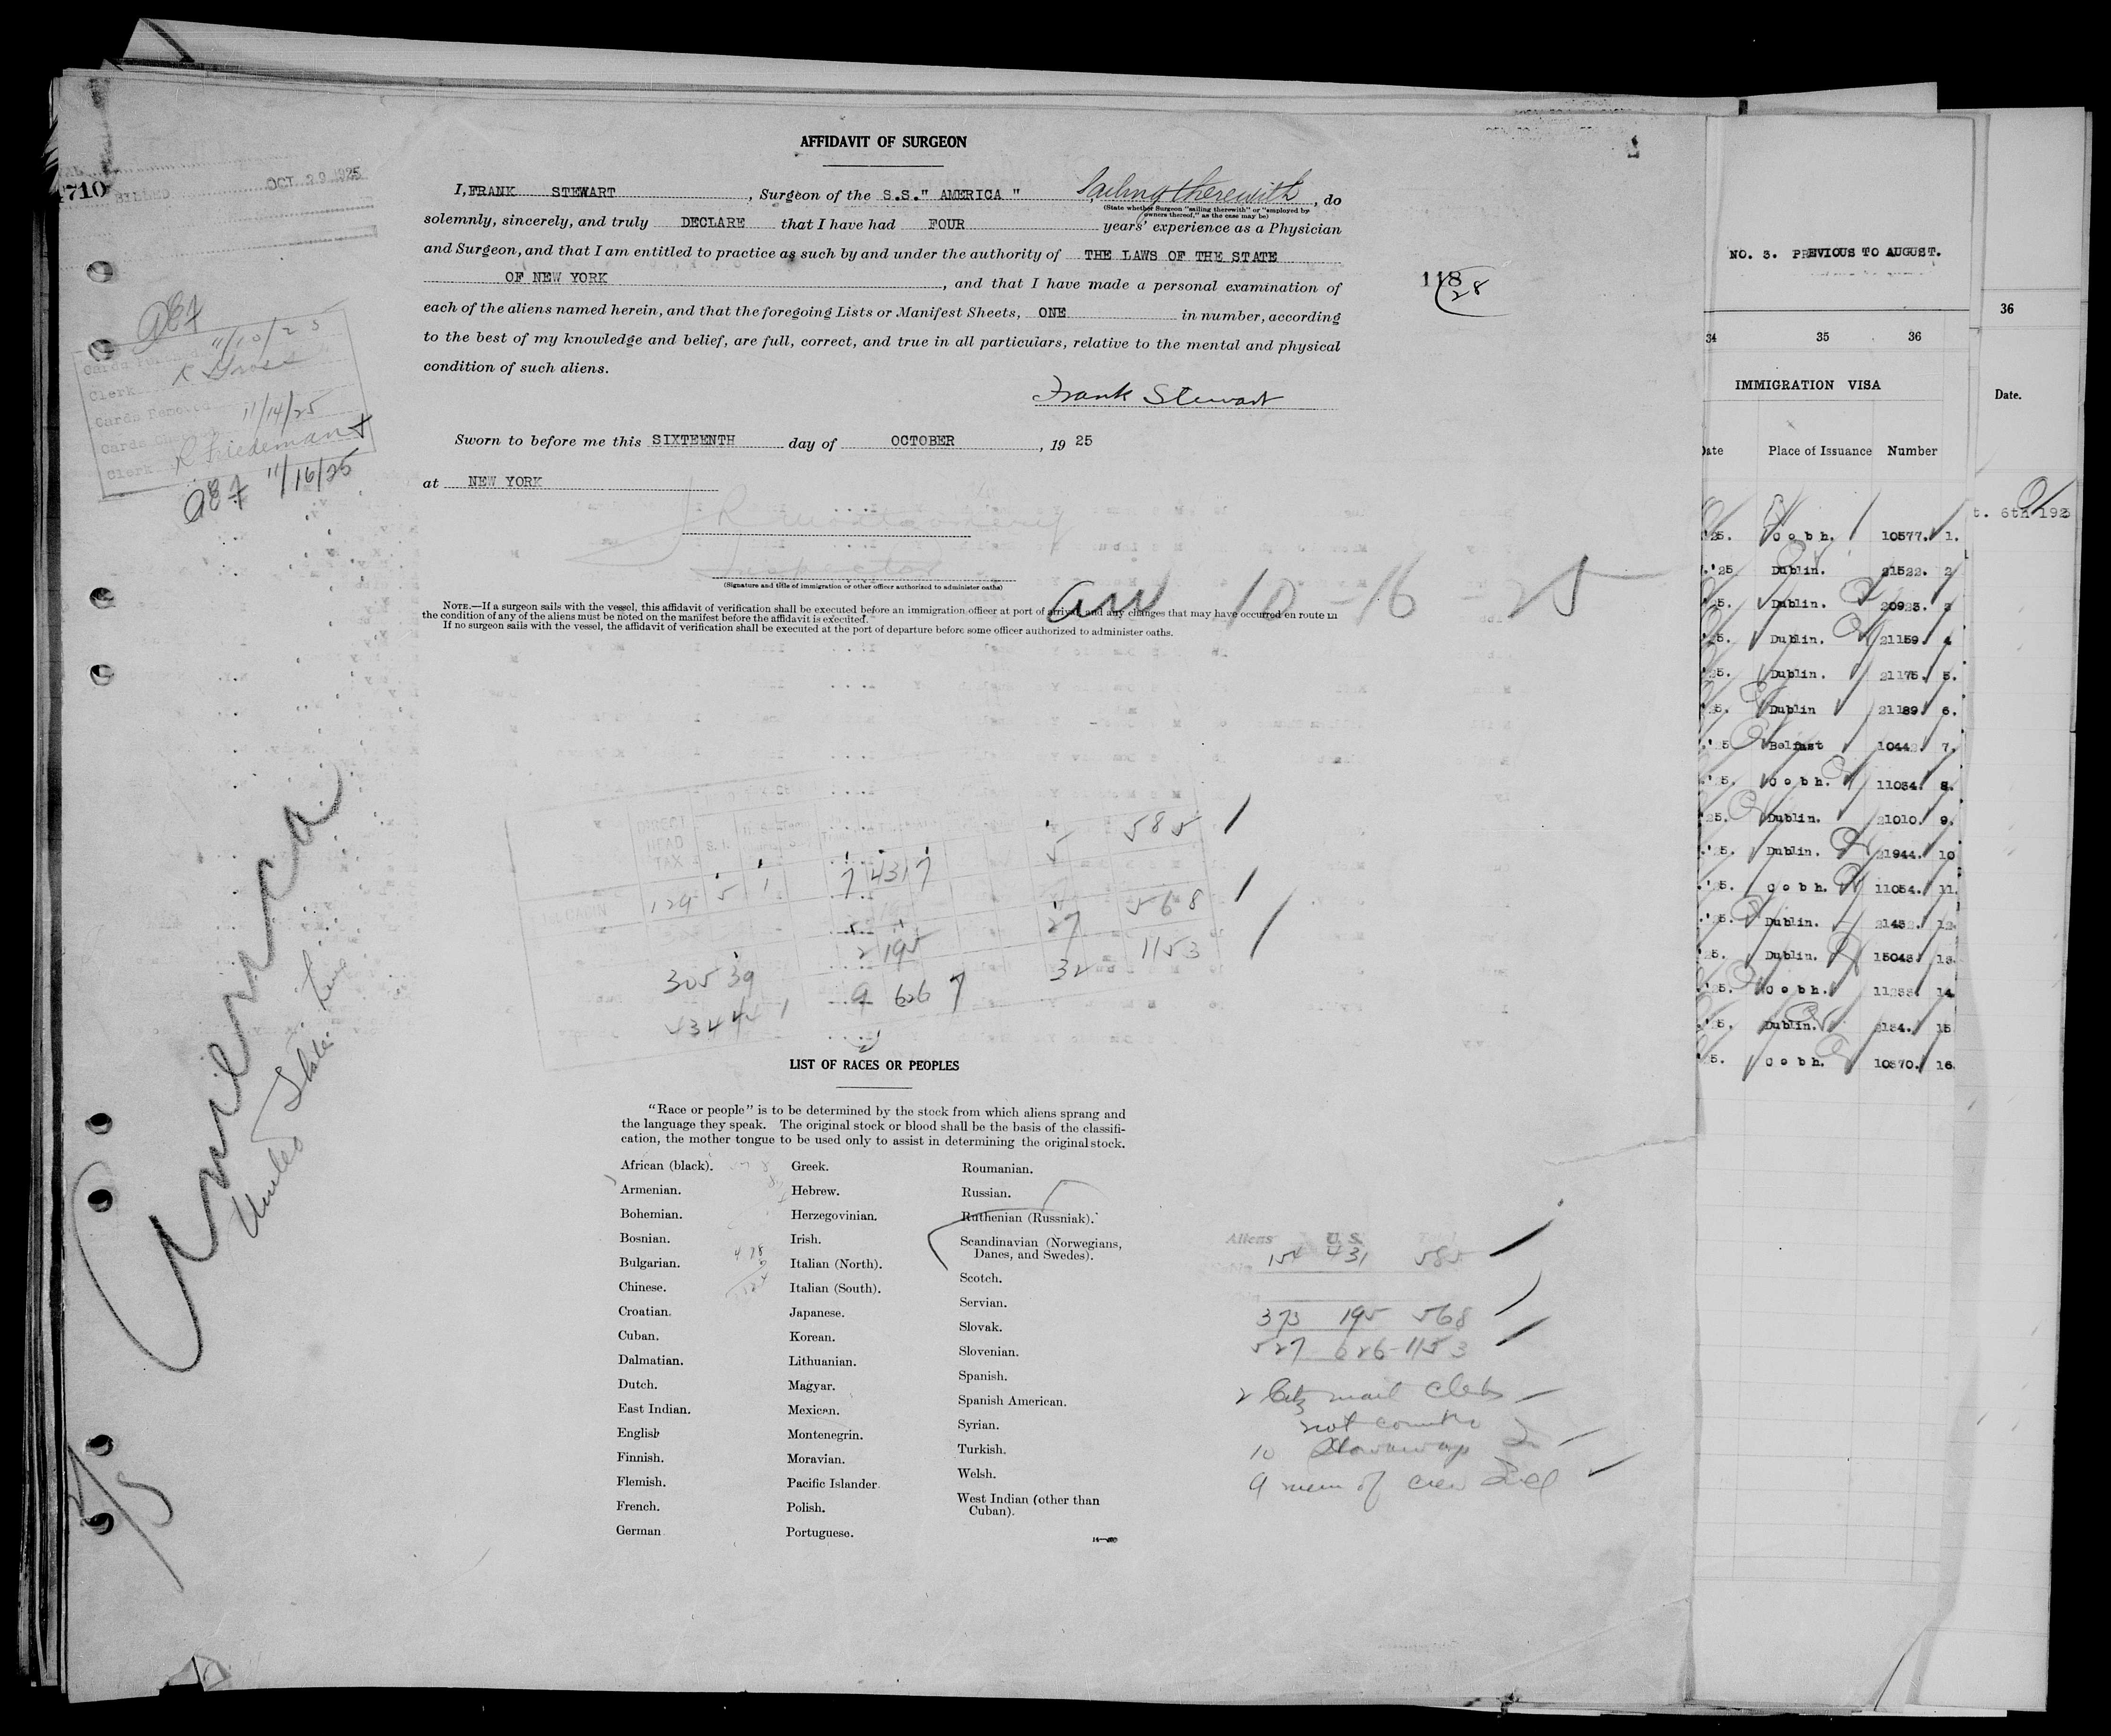 AFFIDAVIT OF SURGEON
I, FRANK STEWART, Surgeon of the S.S." AMERICA " Sailing therewith, do
(State whether Surgeon "sailing therewith" or "employed by
owners thereof," as the case may be)
solemnly, sincerely, and truly DECLARE that I have had FOUR years' experience as a Physician
and Surgeon, and that I am entitled to practice as such by and under the authority of THE LAWS OF THE STATE
OF NEW YORK, and that I have made a personal examination of
each of the aliens named herein, and that the foregoing Lists or Manifest Sheets, ONE in number, according
to the best of my knowledge and belief, are full, correct, and true in all particulars, relative to the mental and physical
condition of such aliens.
Frank Stewart
Sworn to before me this SIXTEENTH day of OCTOBER, 19 25
at NEW YORK
Inspector
(Signature and title of immigration or other officer authorized to administer oaths)
arr 10-16-25
NOTE.—If a surgeon sails with the vessel, this affidavit of verification shall be executed before an immigration officer at port of arrival, and any changes that may have occurred en route in
the condition of any of the aliens must be noted on the manifest before the affidavit is executed.
If no surgeon sails with the vessel, the affidavit of verification shall be executed at the port of departure before some officer authorized to administer oaths.
4710
BILLED OCT 29 1925
11/10/25
Clerk R Gross
Cards Removed 11/14/25
Clerk R Friedeman
11/16/25
118
28
America
United States Line
DIRECT
HEAD
TAX
S. I.
129 5 1 7 431 7 5 585
2 195 27 568
305 39 32 1153
434 44 1 9 626 7
LIST OF RACES OR PEOPLES
"Race or people" is to be determined by the stock from which aliens sprang and
the language they speak. The original stock or blood shall be the basis of the classifi-
cation, the mother tongue to be used only to assist in determining the original stock.
African (black).
Armenian.
Bohemian.
Bosnian.
Bulgarian.
Chinese.
Croatian.
Cuban.
Dalmatian.
Dutch.
East Indian.
English
Finnish.
Flemish.
French.
German
Greek.
Hebrew.
Herzegovinian.
Irish.
Italian (North).
Italian (South).
Japanese.
Korean.
Lithuanian.
Magyar.
Mexican.
Montenegrin.
Moravian.
Pacific Islander.
Polish.
Portuguese.
Roumanian.
Russian.
Ruthenian (Russniak).
Scandinavian (Norwegians,
Danes, and Swedes).
Scotch.
Servian.
Slovak.
Slovenian.
Spanish.
Spanish American.
Syrian.
Turkish.
Welsh.
West Indian (other than
Cuban).
Aliens U.S. Total
154 431 585
373 195 568
527 626 - 1153
2 Citz mail clerks
not counted
10 Stowaways
9 mem of crew
NO. 3. PREVIOUS TO AUGUST.
34 35 36
IMMIGRATION VISA
Date Place of Issuance Number
'25. Cobh. 10577. 1.
'25 Dublin. 21522. 2
'25. Dublin. 20923. 3
'25. Dublin. 21159. 4
'25. Dublin. 21175. 5.
'25. Dublin 21189. 6.
'25 Belfast 10442. 7.
'25. Cobh. 11034. 8.
'25. Dublin. 21010. 9.
'25. Dublin. 21944. 10
'25. Cobh. 11054. 11.
'25. Dublin. 12.
25. Dublin. 13.
25. Cobh. 14
'25. Dublin. 15
'5. Cobh. 16.
36
Date.
t. 6th 192